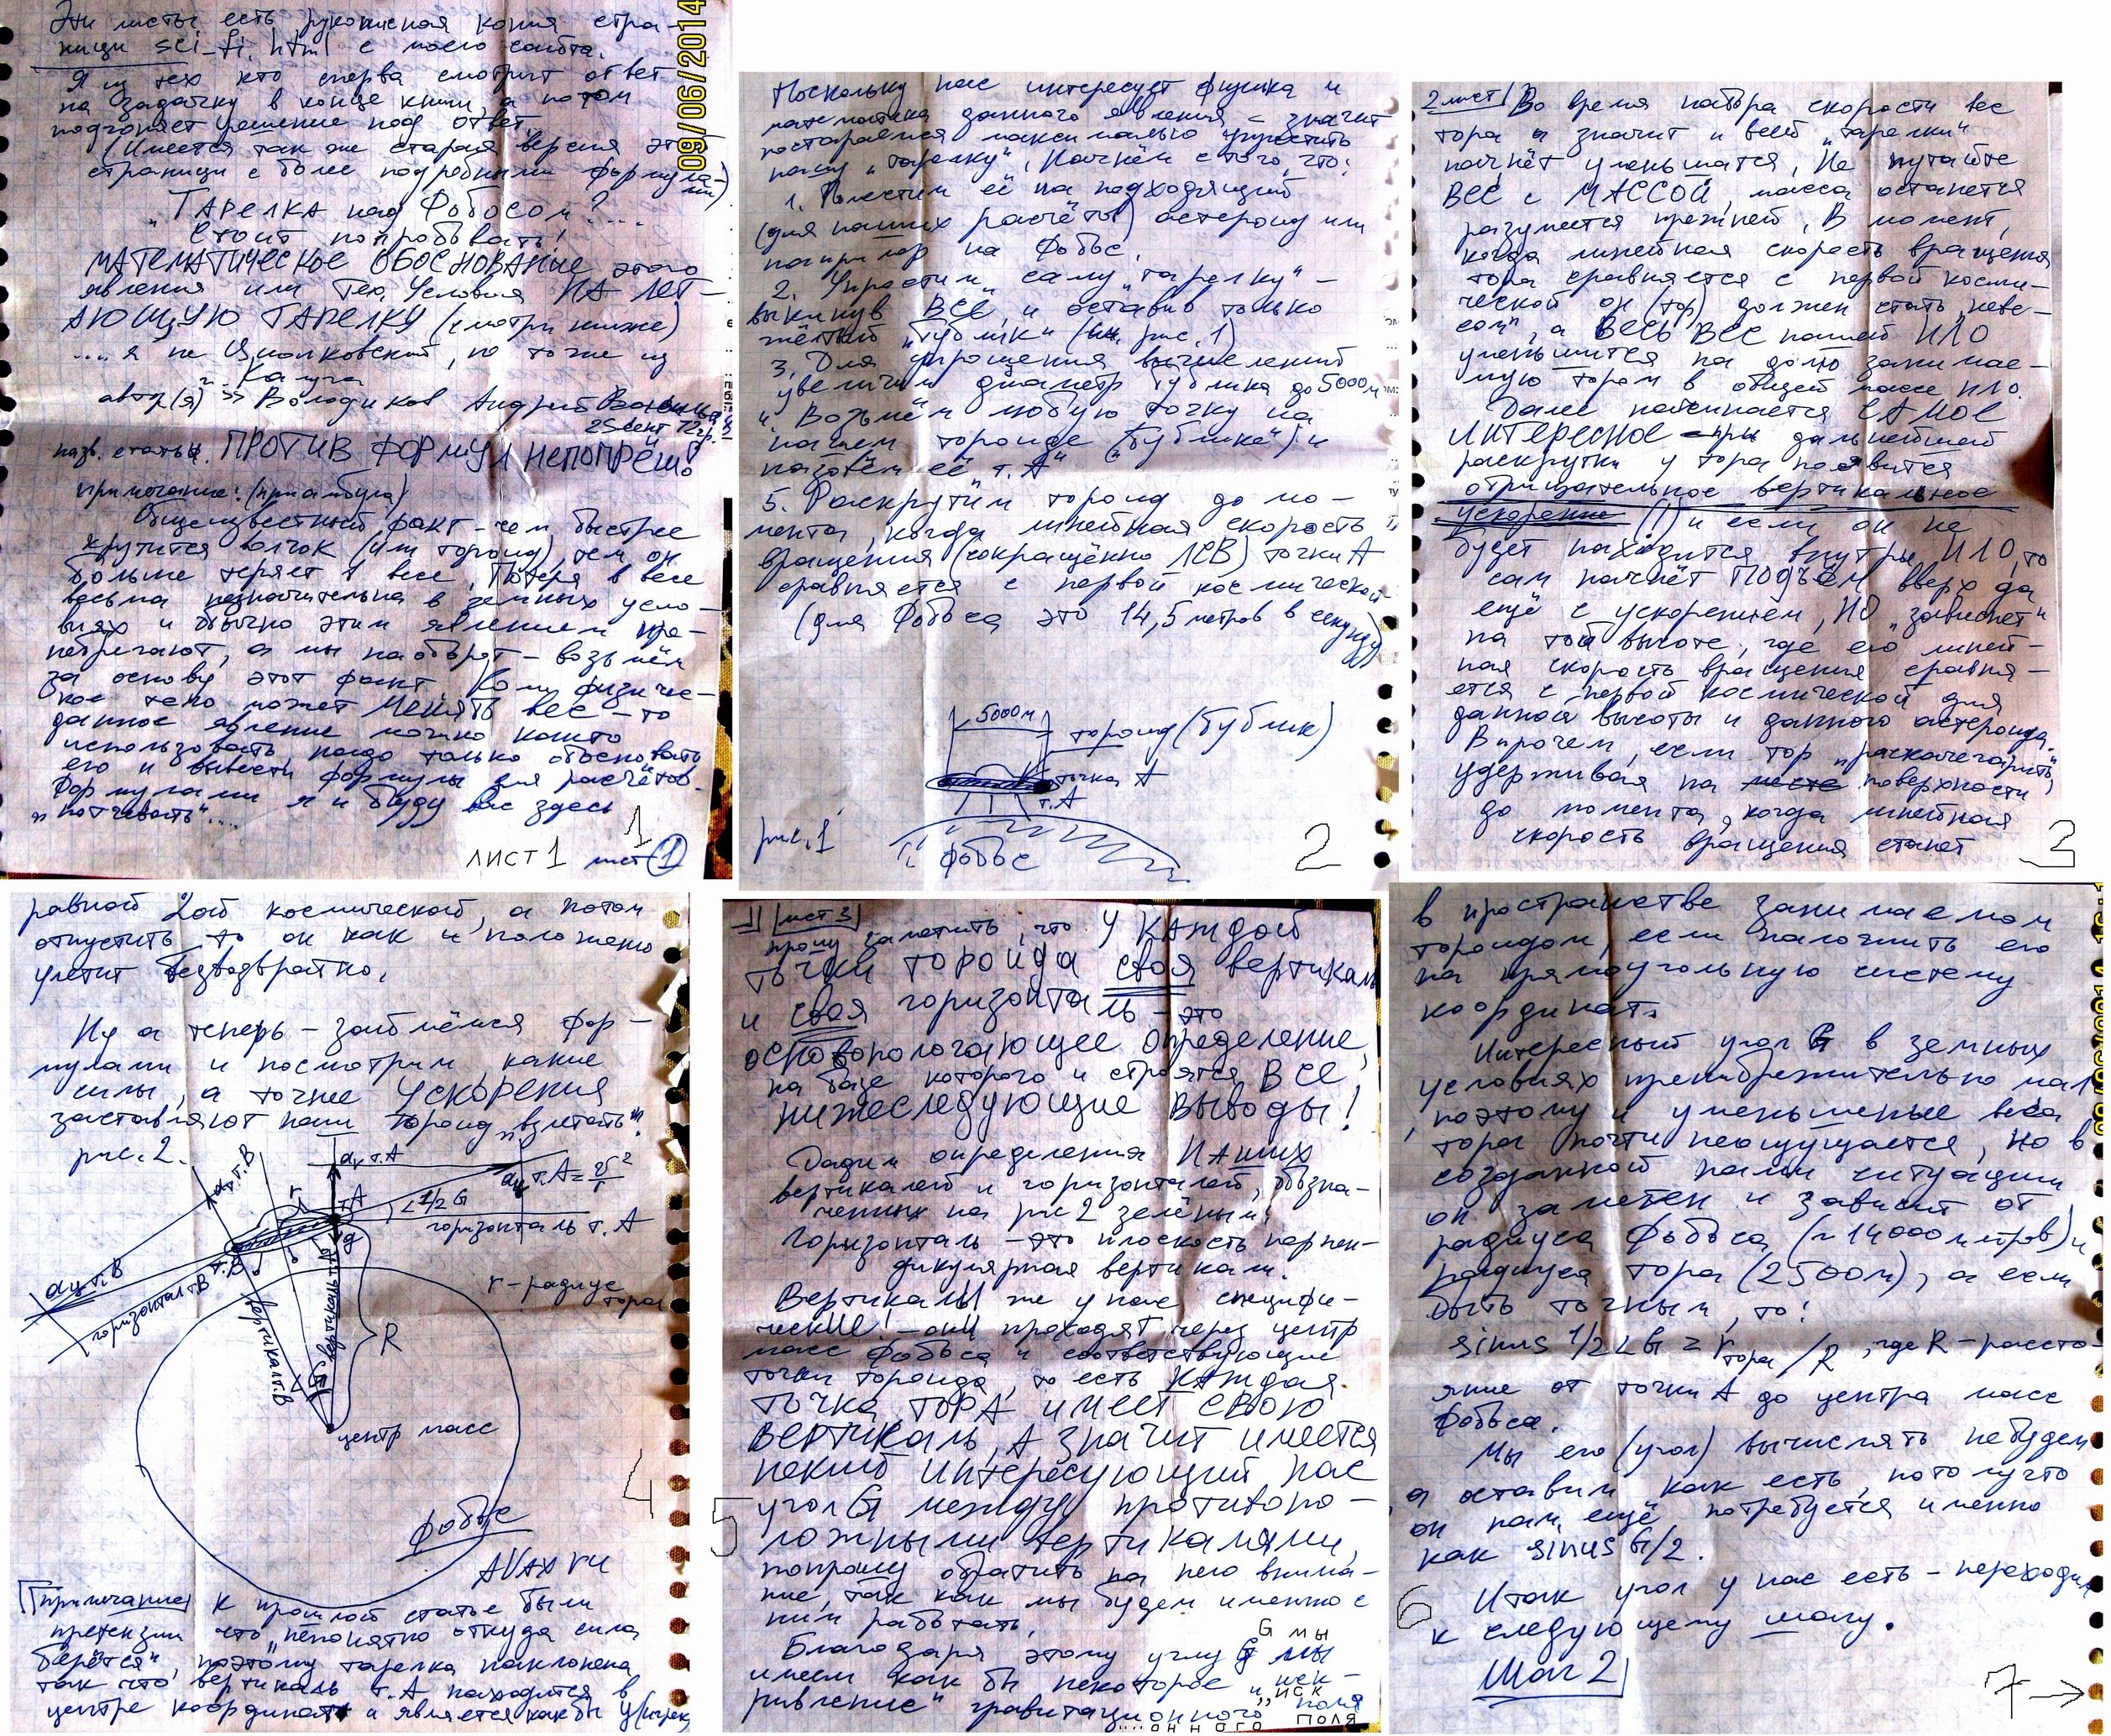 Эти листы есть рукописная копия стра-
ницы sci_fi.html с моего сайта.
Я из тех кто сперва смотрит ответ
на задачку в конце книги, а потом
подгоняет решение под ответ.
(Имеется так же старая версия этой
страницы с более подробными формулами)
"ТАРЕЛКА над Фобосом?...
Стоит попробовать!
МАТЕМАТИЧЕСКОЕ ОБОСНОВАНИЕ этого
явления или Тех. Условия НА ЛЕТ-
АЮЩУЮ ТАРЕЛКУ (смотри ниже)
.... я не Циолковский, но тоже из
г. Калуга
автор(я) => Володиков Андрей
25 сент 72г.
назв. статьи. ПРОТИВ ФОРМУЛ НЕПОПРЁШ!
примечание: (приамбула)
Общеизвестный факт - чем быстрее
крутится волчок (или тороид), тем он
больше теряет в весе. Потеря в весе
весьма незначительна в земных усло-
виях и обычно этим явлением пре-
небрегают, а мы наоборот - возьмём
за основу этот факт. Коли физичес-
кое тело может менять вес - то
данное явление можно
использовать надо только обосновать
его и вывести формулы для расчётов.
Формулами я и буду вас здесь
"потчевать"....
ЛИСТ 1 лист 1
1
09/06/2014
Поскольку нас интересует физика и
математика данного явления - значит
постараемся максимально упростить
нашу "тарелку". Начнём с того, что:
1. Поместим её на подходящий
(для наших расчётов) астероид или
например на Фобос.
2. Упростим саму "тарелку" -
выкинув ВСЕ, и оставив только
жёлтый "бублик" (см. рис. 1)
3. Для упрощения вычислений
увеличим диаметр бублика до 5000м
4. Возьмём любую точку на
нашем тороиде ("бублике") и
назовём её "т. А"
5. Раскрутим тороид до мо-
мента, когда линейная скорость
вращения (сокращённо ЛСВ) точки А
сравняется с первой космической
(для Фобоса это 14,5 метров в секунду)
5000м
тороид (бублик)
точка А
т. А
рис. 1
Фобос
2
2 лист Во время набора скорости вес
тора а значит и всей "тарелки"
начнёт уменьшатся. Не путайте
ВЕС с МАССОЙ, масса останется
разумеется прежней. В момент,
когда линейная скорость вращения
тора сравняется с первой косми-
ческой он (тор) должен стать "неве-
сом", а ВЕСЬ ВЕС нашей НЛО
уменьшится на долю занимае-
мую тором в общей массе НЛО.
Далее начинается САМОЕ
ИНТЕРЕСНОЕ при дальнейшей
раскрутки у тора появится
отрицательное вертикальное
ускорение (!) и если он не
будет находится внутри НЛО, то
сам начнёт ПОДЪЁМ вверх да
ещё с ускорением, НО "зависнет"
на той высоте, где его линей-
ная скорость вращения сравня-
ется с первой космической для
данной высоты и данного астероида.
Впрочем, если тор "раскочегарить",
удерживая на поверхности
до момента, когда линейная
скорость вращения станет
3
равной 2ой космической, а потом
отпустить то он как и положено
улетит безвозвратно.
Ну а теперь - займёмся фор-
мулами и посмотрим, какие
силы, а точнее УСКОРЕНИЯ
заставляют наш тороид "взлетать"
рис. 2.
т. В
т. А
aц т.А = v²/r
∠1/2 G
горизонталь т. А
g
r
aц т. В
горизонталь т. В
вертикаль т. В
r - радиус
тора
R
центр масс
Фобос
4
AVAX ru
Примечание К прошлой статье были
претензии что "непонятно откуда сила
берётся", поэтому тарелка наклонена
так что вертикаль т. А находится в
центре координат и является как бы
1) лист 3
прошу заметить, что У КАЖДОЙ
точки тороида своя вертикаль
и своя горизонталь - это
основопологающее определение,
на базе которого и строятся ВСЕ
нижеследующие выводы!
Дадим определения НАШИХ
вертикалей и горизонталей, обозна-
ченных на рис 2 зелёным:
Горизонталь - это плоскость перпен-
дикулярная вертикали.
Вертикали же у нас специфи-
ческие! - они проходят через центр
масс Фобоса и соответствующие
точки тороида, то есть КАЖДАЯ
ТОЧКА ТОРА ИМЕЕТ СВОЮ
ВЕРТИКАЛЬ, А значит имеется
некий интересующий нас
угол G между противопо-
ложными вертикалями,
попрошу обратить на него внима-
ние, так как мы будем именно с
ним работать.
G мы
Благодаря этому углу G мы
имеем как бы некоторое "иск-
"иск
ривление" гравитационного поля
....онного поля
5
в пространстве занимаемом
тороидом, если наложить его
на прямоугольную систему
координат.
Интересный угол G в земных
условиях пренебрежительно мал
, поэтому и уменьшение веса
тора почти неощущается, но в
созданной нами ситуации
он заметен и зависит от
радиуса Фобоса (≈14000 метров) и
радиуса тора (2500м), а если
быть точным, то:
sinus 1/2 ∠G = r тора / R , где R - рассто-
яние от точки А до центра масс
Фобоса.
Мы его (угол) вычислять небудем
, а оставим как есть, потомучто
он нам ещё потребуется именно
как sinus G/2.
Итак угол у нас есть - переходим
к следующему шагу.
Шаг 2
6
7 →